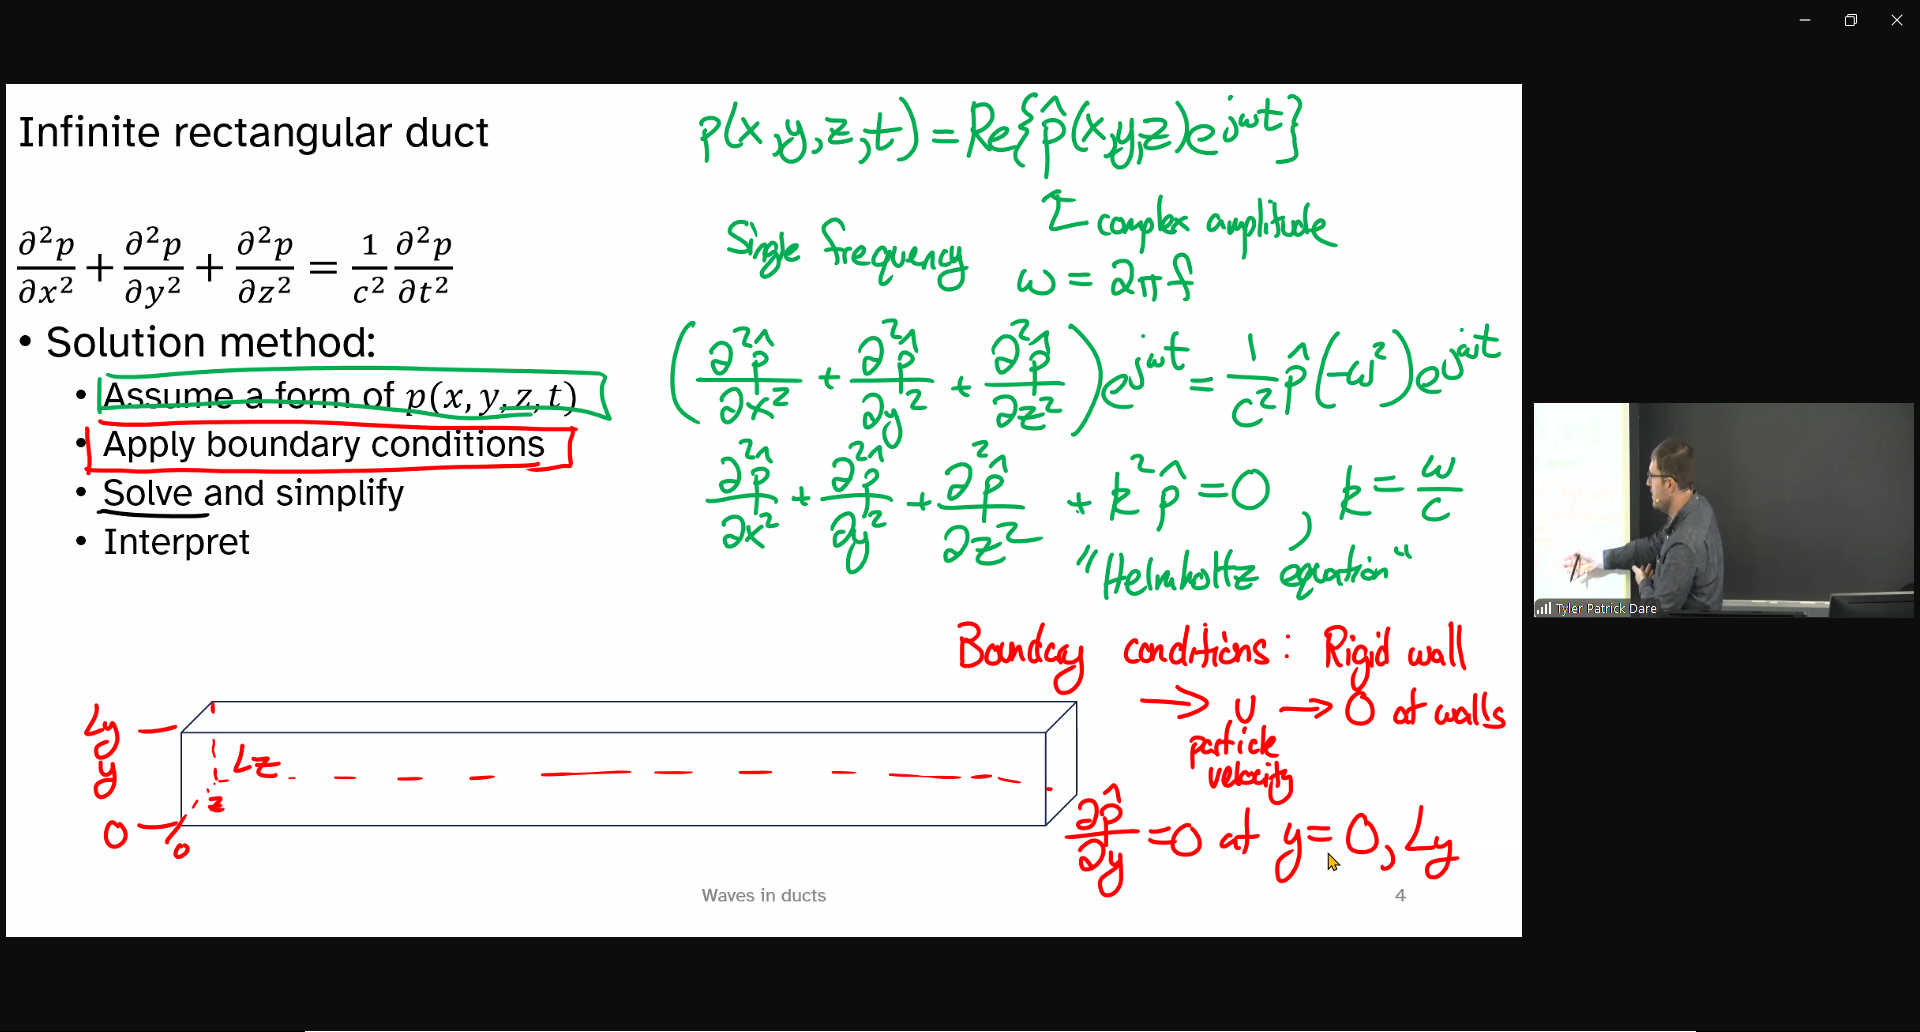 Infinite rectangular duct
∂²p/∂x² + ∂²p/∂y² + ∂²p/∂z² = 1/c² ∂²p/∂t²
• Solution method:
• Assume a form of p(x, y, z, t)
• Apply boundary conditions
• Solve and simplify
• Interpret
p(x,y,z,t) = Re{p̂(x,y,z)e^jωt}
complex amplitude
Single frequency
ω = 2πf
(∂²p̂/∂x² + ∂²p̂/∂y² + ∂²p̂/∂z²)e^jωt = 1/c² p̂(-ω²)e^jωt
∂²p̂/∂x² + ∂²p̂/∂y² + ∂²p̂/∂z² + k²p̂ = 0, k = ω/c
"Helmholtz equation"
Boundary conditions: Rigid wall
→ U → 0 at walls
particle
velocity
∂p̂/∂y = 0 at y = 0, Ly
Ly
y
0
Lz
z
0
Waves in ducts
4
Tyler Patrick Dare